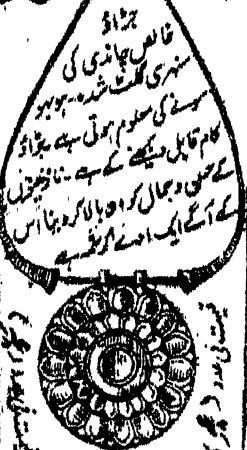 جڑاؤ
خالص چاندی کی
سنہری گلٹ شدہ ہو بہو
سونے کی معلوم ہوتی ہے جڑاؤ
کام قابل دیکھنے کے ہے۔ نازنینوں
کے حسن و جمال کو دو بالا کر دینا اس
کے آگے ایک ادنےٰ کرشمہ ہے
قیمت فی عدد